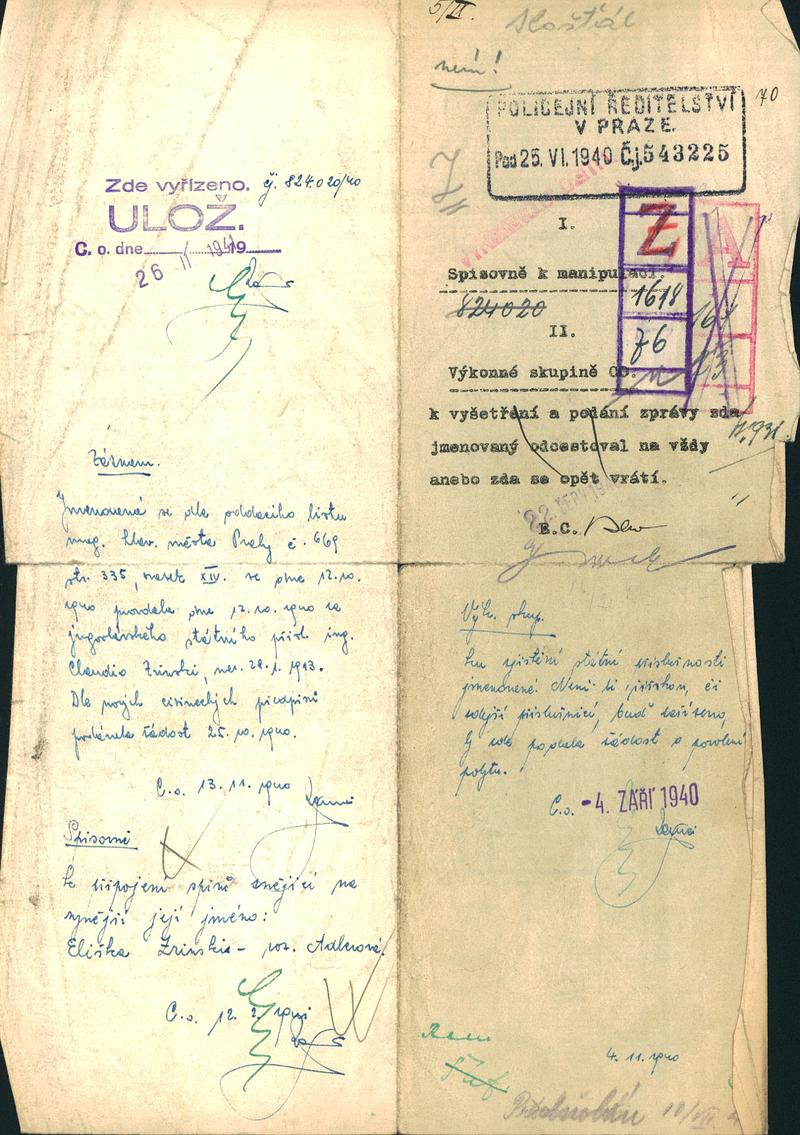 Zde vyřízeno. čj. 824.020/40
ULOŽ.
C. o. dne 26 II 1941
Záznam.
Jmenovaná se dle oddacího listu
mag. hlav. města Prahy č. 669
str. 335, svazek XIV. se dne 12.10.
1940 provdala dne 12.10.1940 za
jugoslávského státního přísl. ing.
Claudia Zrinski, nar. 28.1.1913.
Dle nových cizineckých předpisů
podávala žádost 25.10.1940.
C.o. 13.11.1940
Spisovně
k připojení spisů znějící na
nynější její jméno:
Eliška Zrinski - roz. Adlerová.
C.o. 12. 2.
5/II.
Košťál
není!
70
POLICEJNÍ ŘEDITELSTVÍ
V PRAZE.
Pod 25. VI. 1940 Č.j. 543225
I.
Spisovně k manipulaci.
824020
II.
Výkonné skupině CO.
k vyšetření a podání zprávy zda
jmenovaný odcestoval na vždy
anebo zda se opět vrátí.
B.C.
Z
1618
76
A
Výk. skup.
ku zjištění státní příslušnosti
jmenované. Není-li příslušn. či
zdejší příslušnicí, buď zařízeno,
by zde podala žádost o povolení
pobytu.
C.o. -4. ZÁŘÍ 1940
4.11.1940